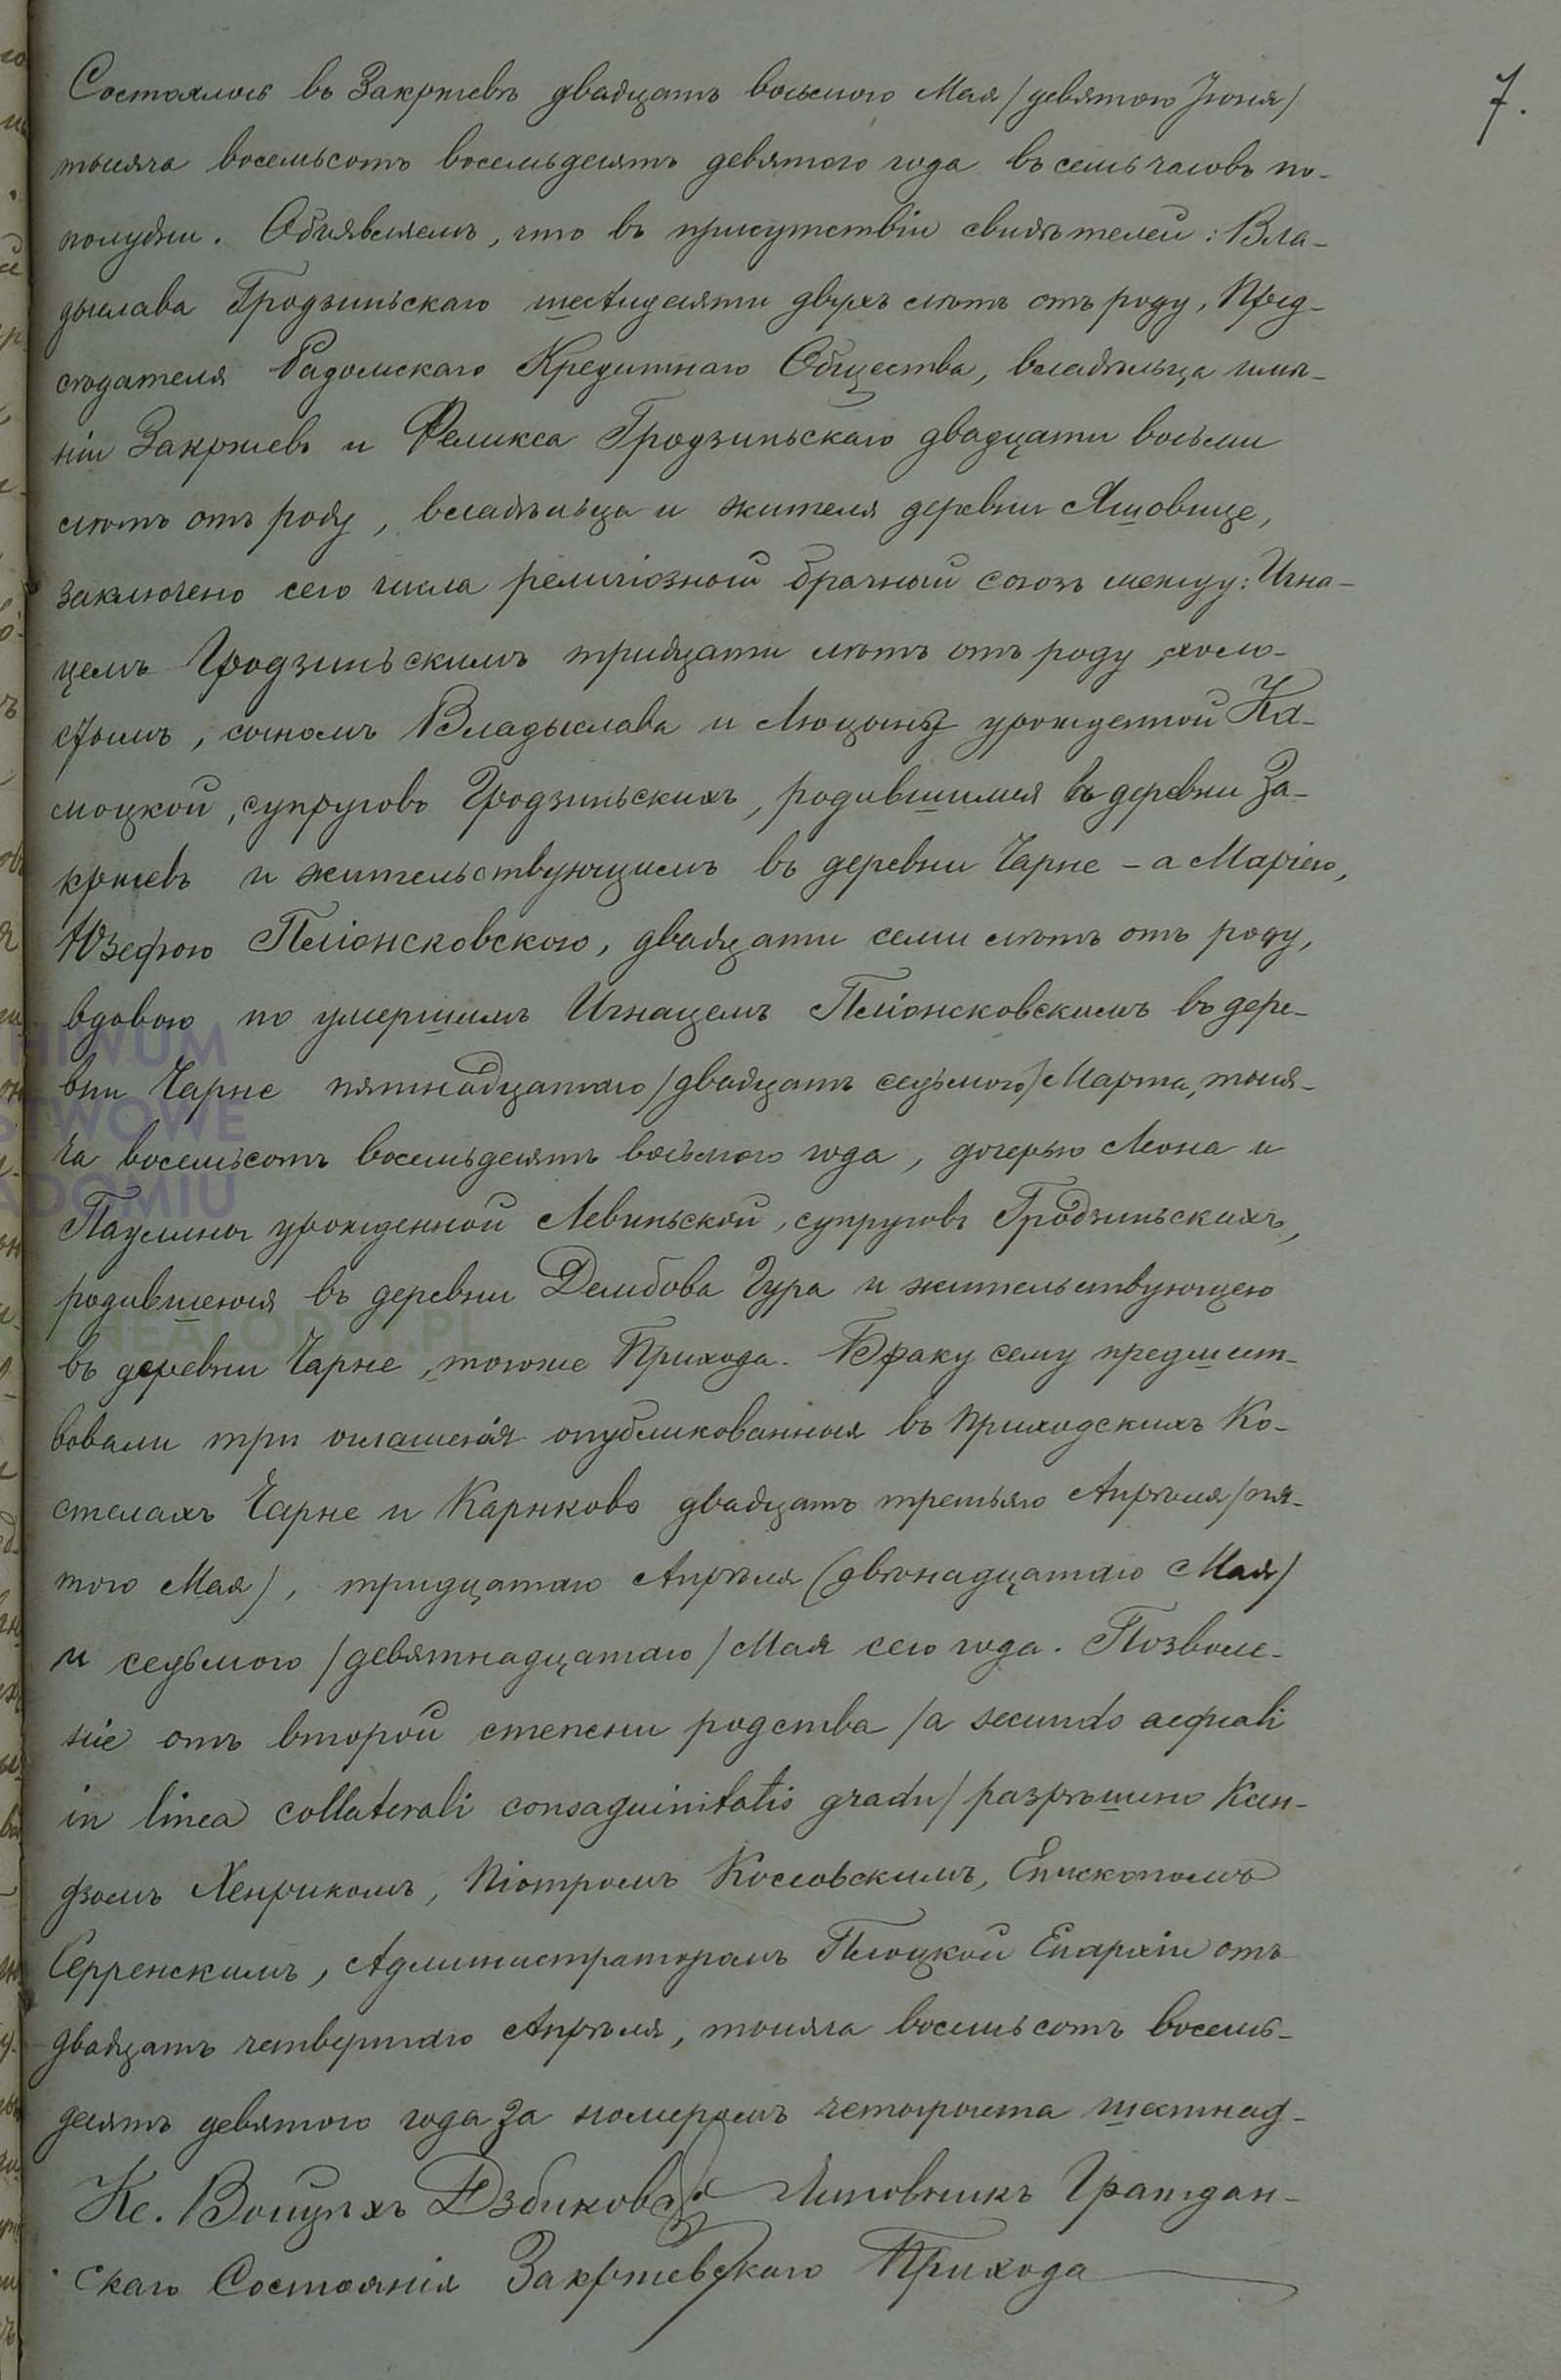 7.
Состоялось въ Закржевѣ двадцать восьмого Мая /девятого Іюня/
тысяча восемьсотъ восемьдесятъ девятого года въ семь часовъ по-
полудни. Объявляемъ, что въ присутствіи свидѣтелей: Вла-
дыслава Гродзиньскаго шестидесяти двухъ лѣтъ отъ роду, Пред-
сѣдателя Радомскаго Кредитнаго Общества, владѣльца имѣ-
ніи Закржевъ и Феликса Гродзиньскаго двадцати восьми
лѣтъ отъ роду, владѣльца и жителя деревни Яшовице,
заключено сего числа религіозный брачный союзъ между: Игна-
цемъ Гродзиньскимъ тридцати лѣтъ отъ роду, холо-
стымъ, сыномъ Владыслава и Люцыны урожденной Ка-
моцкой, супруговъ Гродзиньскихъ, родившимся въ деревни За-
кржевъ и жительствующимъ въ деревни Чарне - а Маріею,
Юзефою Пліонсковскою, двадцати семи лѣтъ отъ роду,
вдовою по умершимъ Игнацемъ Пліонсковскимъ въ дере-
вни Чарне пятнадцатаго /двадцать седьмого/ Марта, тыся-
ча восемьсотъ восемьдесятъ восьмого года, дочерью Леона и
Паулины урожденной Левиньской, супруговъ Гродзиньскихъ,
родившеюся въ деревни Дембова Гура и жительствующею
въ деревни Чарне, тогоже Прихода. Браку сему предшест-
вовали три оглашенія опубликованныя въ Приходскихъ Ко-
стелахъ Чарне и Карнково двадцать третьяго Апрѣля /пя-
того Мая/, тридцатаго Апрѣля (двѣнадцатаго Мая/
и седьмого /девятнадцатаго/ Мая сего года. Позволе-
ніе отъ второй степени родства /a secundo aequali
in linea collaterali consaguinitatis gradu/ разрѣшено Ксен-
дзомъ Хенрикомъ, Піотромъ Коссовскимъ, Епископомъ
Серренскимъ, Администраторомъ Плоцкой Епархіи отъ
двадцать четвертаго Апрѣля, тысяча восемьсотъ восемь-
десятъ девятого года за номеромъ четыроста шестнад-
Кс. Войцѣхъ Дзбиковскій Чиновникъ Граждан-
скаго Состоянія Закржевскаго Прихода